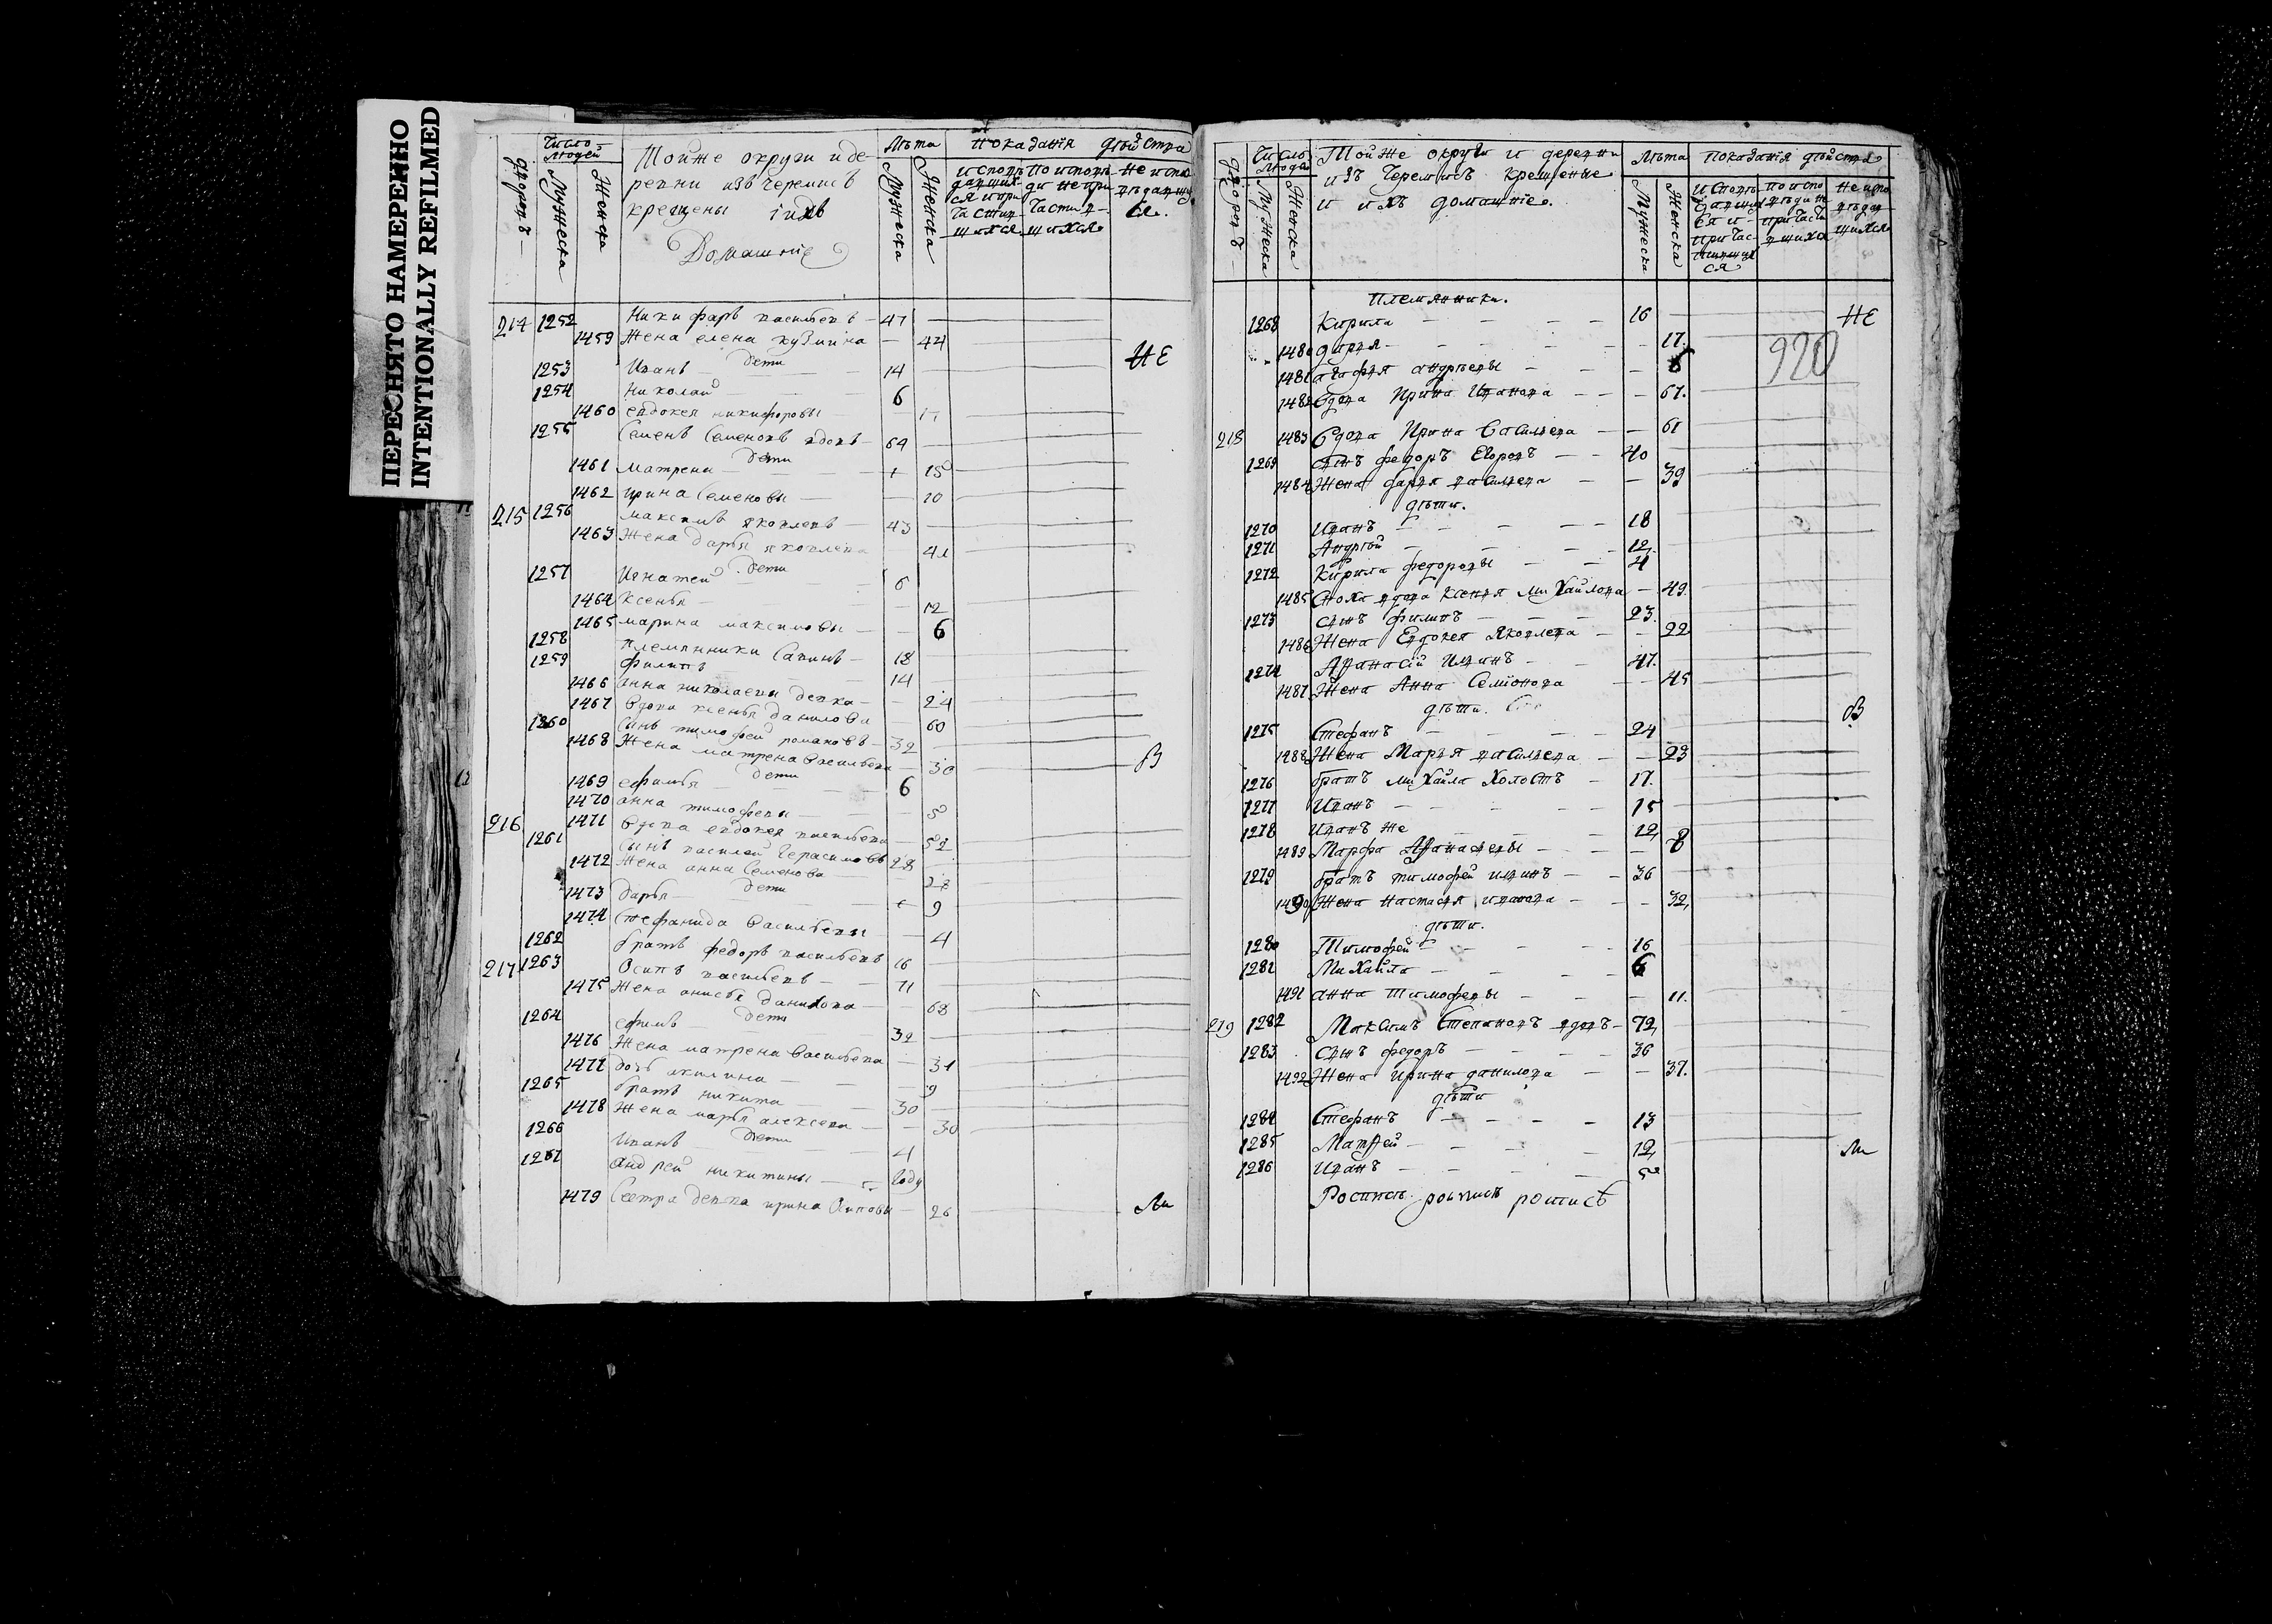 ПЕРЕСНЯТО НАМЕРЕННО
INTENTIONALLY REFILMED
дворовъ
Число людей
Мужеска
Женска
Тойже округи иде-
ревни изъ черемисъ
крещены iихъ
Домашнiе
Лѣта
Мужеска
Женска
показанiя дѣйства
214 1252 Никифаръ васильевъ 47
1459 Жена елена кузмина 44
дети НЕ
1253 Иванъ 14
1254 Николай 6
1460 евдокея никифоровы
1255 Семенъ Семеновъ вдовъ 64
дети
1461 матрена 15
1462 ирина Семеновы 10
215 1256 максимъ яковлевъ 43
1463 Жена дарья яковлева 41
дети
1257 Игнатей 6
1464 Ксенья 12
1465 марина максимовы 6
1258 племянники Савинъ 18
1259 филипъ 14
1466 анна николаевы девка 24
1467 вдова ксенья данилова 60
1260 Сынъ тимофей романовъ 32
1468 Жена матрена васильева 30 В
дети
1469 ефимья 6
1470 анна тимофевы
216 1471 вдова евдокея васильева 52
1261 Сынъ василей Герасимовъ 28
1472 Жена анна Семенова 28
дети
1473 дарья 9
1474 Стефанида васильевы 4
1262 братъ федоръ васильевъ 16
217 1263 Осипъ васильевъ 71
1475 Жена анисья данилова 68
дети
1264 ефимъ 32
1476 Жена матрена васильева 31
1477 дочь акилина 9
1265 братъ никита 30
1478 Жена марья алексева 30
дети
1266 Иванъ 4
1267 андрей никитины году
1479 Сестра девка ирина Осипова 26 Ли
дворовъ
Число людей
Мужеска
Женска
Той же округи и деревни
изъ Черемисъ крещеные
и ихъ домашнiе.
Лѣта
Мужеска
Женска
показанiя дѣйства
племянники.
1268 Кирила 16 НЕ
1480 дарья 17.
920
1481 агафья андрѣевы 6
1482 вдова Ирина Иванова 67.
218 1483 вдова Ирина Васильева 61
1269 сынъ федоръ Егоровъ 40
1484 Жена дарья васильева 39
дѣти.
1270 Иванъ 18
1271 Андрѣй 12
1272 Кирила федоровы 4
1485 Сноха вдова Ксенья Михайлова 49.
1273 сынъ филипъ 23.
1486 Жена Евдокея Яковлева 22
1274 Афанасiй Ильинъ 47.
1487 Жена Анна Семiонова 45
дѣти. В
1275 Стефанъ 24
1488 Жена Марья васильева 23
1276 братъ Михайла Холостъ 17.
1277 Иванъ 15
1278 Иванъ же 12,
1489 Марфа Афанасевы 8
1279 братъ тимофей ильинъ 36
1490 Жена настасья иванова 32,
дѣти.
1280 Тимофей 16
1281 Михайла 6
1491 анна тимофевы 11.
219 1282 Максимъ Степановъ вдовъ 72,
1283 сынъ федоръ 36
1492 Жена ирина данилова 37.
дѣти
1284 Стефанъ 13
1285 Матфей 12, Ли
1286 Иванъ
Роспись роспись роспись